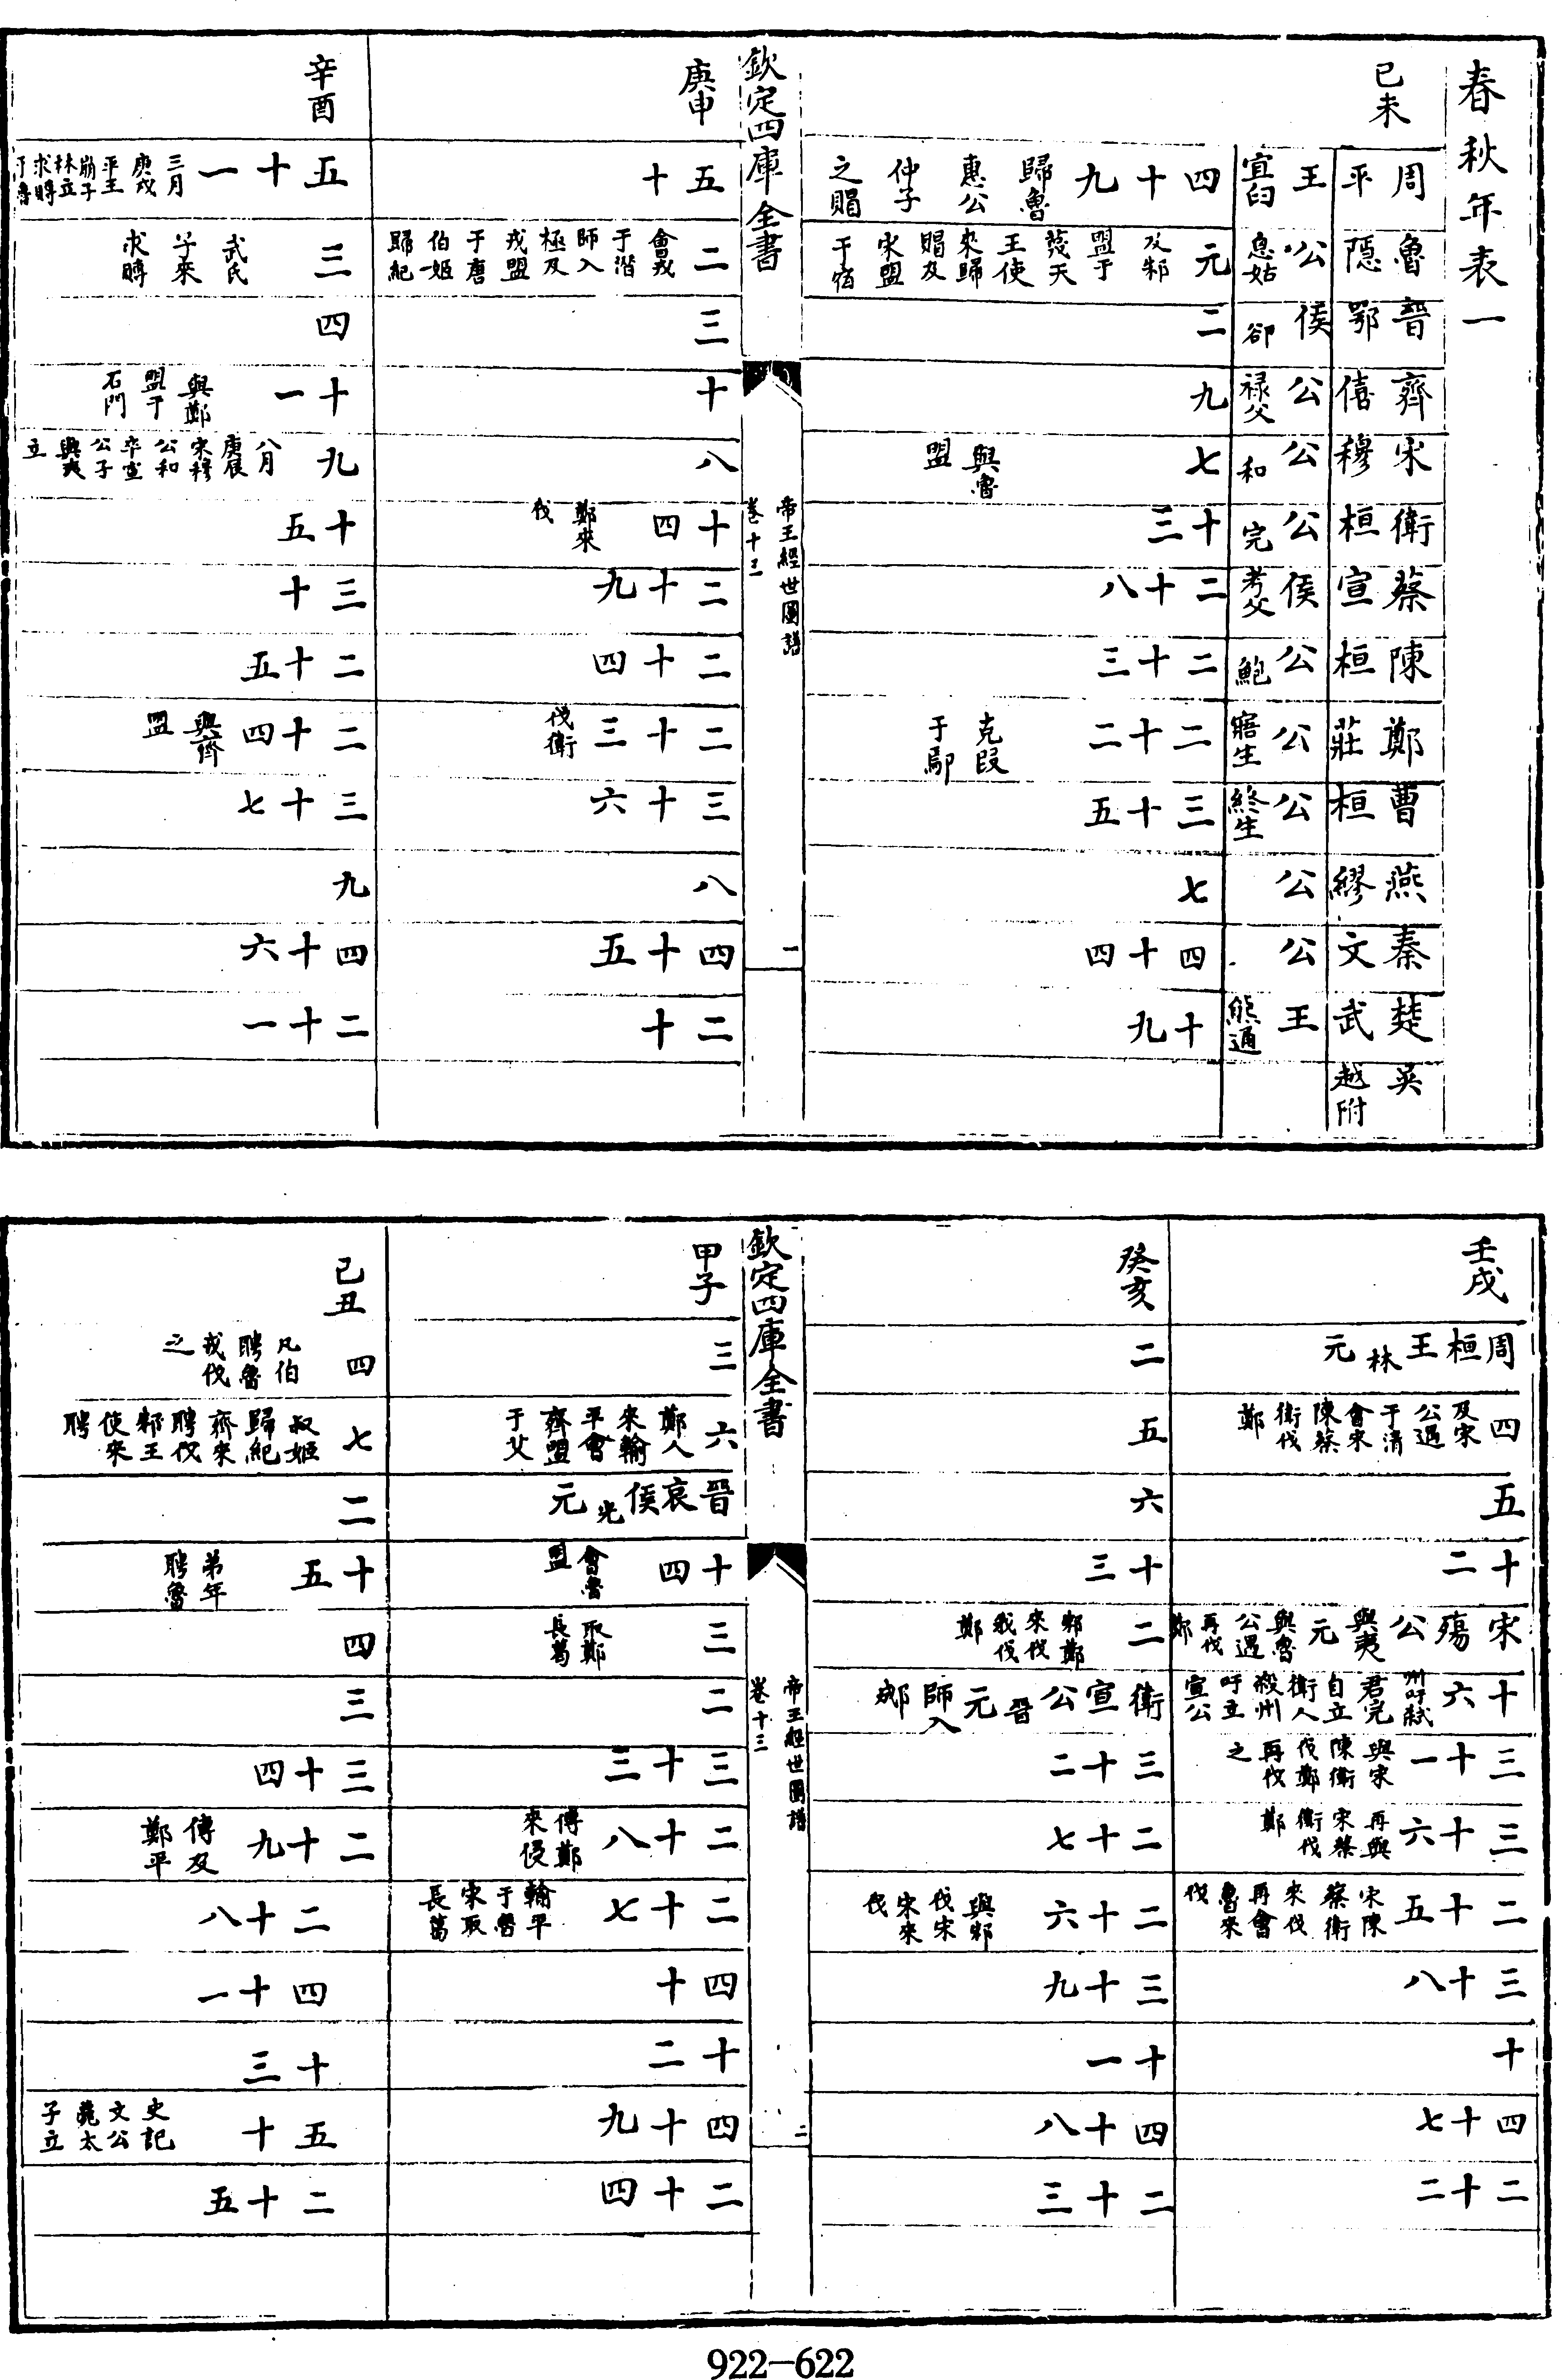 春秋年表一
己未
周平王宜臼 四十九 歸魯惠公仲子之賵
魯隱公息姑 元 及邾盟于蔑天王使來歸賵及宋盟于宿
晉鄂侯郤 二
齊僖公祿父 九
宋穆公和 七 與魯盟
衛桓公完 十三
蔡宣侯考父 二十八
陳桓公鮑 二十三
鄭莊公寤生 二十二 克段于鄢
曹桓公終生 三十五
燕繆公 七
秦文公 四十四
楚武王熊通 十九
吳越附
欽定四庫全書
帝王經世圖譜
卷十三
一
庚申
五十
二 會戎于潛師入極及戎盟于唐伯姬歸紀
三
十
八
十四 鄭來伐
二十九
二十四
二十三 伐衛
三十六
八
四十五
二十
辛酉
五十一 三月庚戌平王崩子林立求賻于魯
三 武氏子來求賻
四
十一 與鄭盟于石門
九 八月庚辰宋穆公和卒宣公子與夷立
十五
三十
二十五
二十四 與齊盟
三十七
九
四十六
二十一
壬戌
周桓王林元
四 及宋公遇于清會宋陳蔡衛伐鄭
五
十二
宋殤公與夷元 與魯公遇再伐鄭
十六 州吁弒君完自立衛人殺州吁立宣公
三十一 與宋陳衛伐鄭再伐之
三十六 再與宋蔡衛伐鄭
二十五 宋陳蔡衛來伐再會魯來伐
三十八
十
四十七
二十二
癸亥
二
五
六
十三
二 邾鄭來伐我伐鄭
衛宣公晉元 師入郕
三十二
二十七
二十六 與邾伐宋宋來伐
三十九
十一
四十八
二十三
欽定四庫全書
帝王經世圖譜
卷十三
二
甲子
三
六 鄭人來輸平會齊盟于艾
晉哀侯光元
十四 會魯盟
三 取鄭長葛
二
三十三
二十八 傳鄭來侵
二十七 輸平于魯宋取長葛
四十
十二
四十九
二十四
己丑
四 凡伯聘魯戎伐之
七 叔姬歸紀齊來聘伐邾王使來聘
二
十五 弟年聘魯
四
三
三十四
二十九 傳及鄭平
二十八
四十一
十三
五十 史記文公薨太子立
二十五
922-622